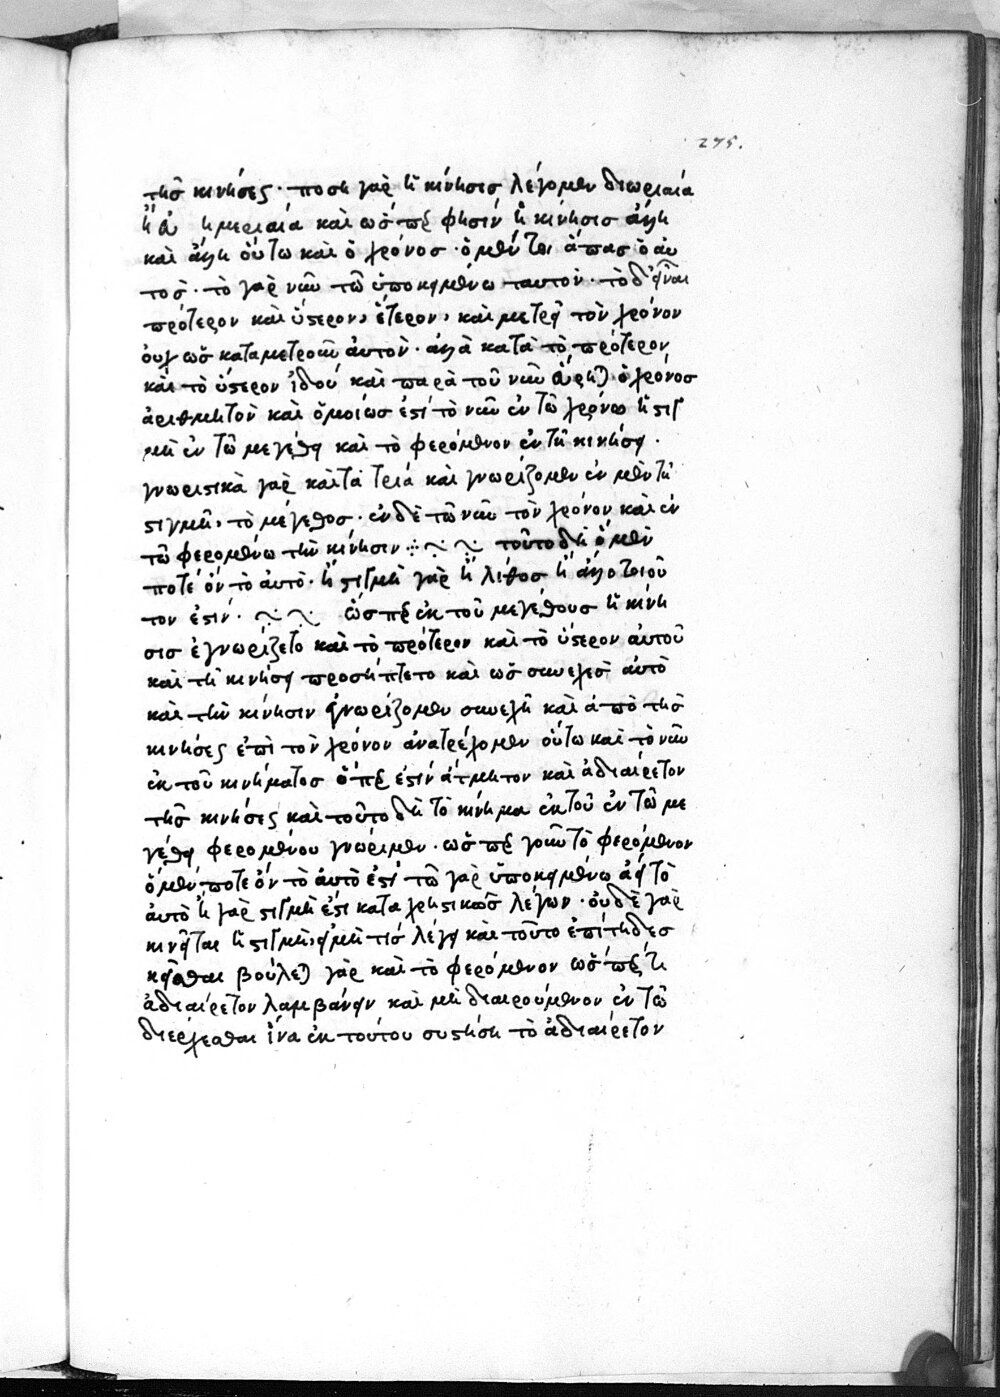 275.
τῆς κινήσεως · ποση γὰρ ἡ κίνησις λέγομεν διωριαία
ἢ ἡμεριαία καὶ ὥσπερ φησὶν ἡ κίνησις ἄλλη
καὶ ἄλλη οὕτω καὶ ὁ χρόνος · ὁ μέντοι ἅπας ὁ αὐ
τος · τὸ γὰρ νῦν τῶ ὑποκειμένω ταυτον · τὸ δ' εἶναι
πρότερον καὶ ὕστερον, ἕτερον, καὶ μετρεῖ τὸν χρόνον
οὐχ ὡς καταμετροῦν αὐτὸν · ἀλλὰ κατὰ τὸ πρότερον
καὶ τὸ ὕστερον ἰδού καὶ παρὰ τοῦ νῦν ὁ χρόνος
ἀριθμητὸν καὶ ὅμοίως ἐστί τὸ νῦν ἐν τῶ χρόνω ἡ στιγ
μὴ ἐν τῶ μεγέθει καὶ τὸ φερόμενον ἐν τῆ κινήσει ·
γνωριστικὰ γὰρ καὶ τὰ τρία καὶ γνωρίζομεν ἐν μὲν τῆ
στιγμῆ, τὸ μέγεθος · ἐν δὲ τῶ νῦν τὸν χρόνον καὶ ἐν
τῶ φερομένω τὴν κίνησιν ⁘ ~ ~ τοῦτο δὴ ὃ μὲν
ποτέ ὂν τὸ αὐτὸ · ἢ στιγμὴ γὰρ ἢ λίθος ἢ ἄλλο τοιοῦ
τον ἐστίν · ~ ~ ὥσπερ ἐκ τοῦ μεγέθους ἡ κίνη
σις ἐγνωρίζετο καὶ τὸ πρότερον καὶ τὸ ὕστερον αὐτοῦ
καὶ τῆ κινήσει προσήπτετο καὶ ὡς συνεχὲς αὐτὸ
καὶ τὴν κίνησιν γνωρίζομεν συνεχῆ καὶ ἀπὸ τῆς
κινήσεως ἐπὶ τὸν χρόνον ἀνατρέχομεν οὕτω καὶ τὸ νῦν
ἐκ τοῦ κινήματος ὅπερ ἐστίν ἄτμητον καὶ ἀδιαίρετον
τῆς κινήσεως καὶ τοῦτο δὴ τὸ κίνημα ἐκ τοῦ ἐν τῶ με
γέθει φερομένου γνώριμεν · ὥσπερ γοῦν τὸ φερόμενον
ὃ μέν ποτε ὄν τὸ αὐτὸ ἐστί τῶ γὰρ ὑποκειμένω ἀεὶ τὸ
αὐτὸ ἢ γὰρ στιγμὴ ἐστι καταχρηστικῶς λέγων · οὐδὲ γὰρ
κινεῖται ἡ στιγμὴ, εἰ μὴ τις λέγει καὶ τοῦτο ἐπίτηδες
κεῖσθαι βούλεται γὰρ καὶ τὸ φερόμενον ὥσπερ τι
ἀδιαίρετον λαμβάνειν καὶ μὴ διαιρούμενον ἐν τῶ
διέρχεσθαι ἵνα ἐκ τούτου συστήση τὸ ἀδιαίρετον